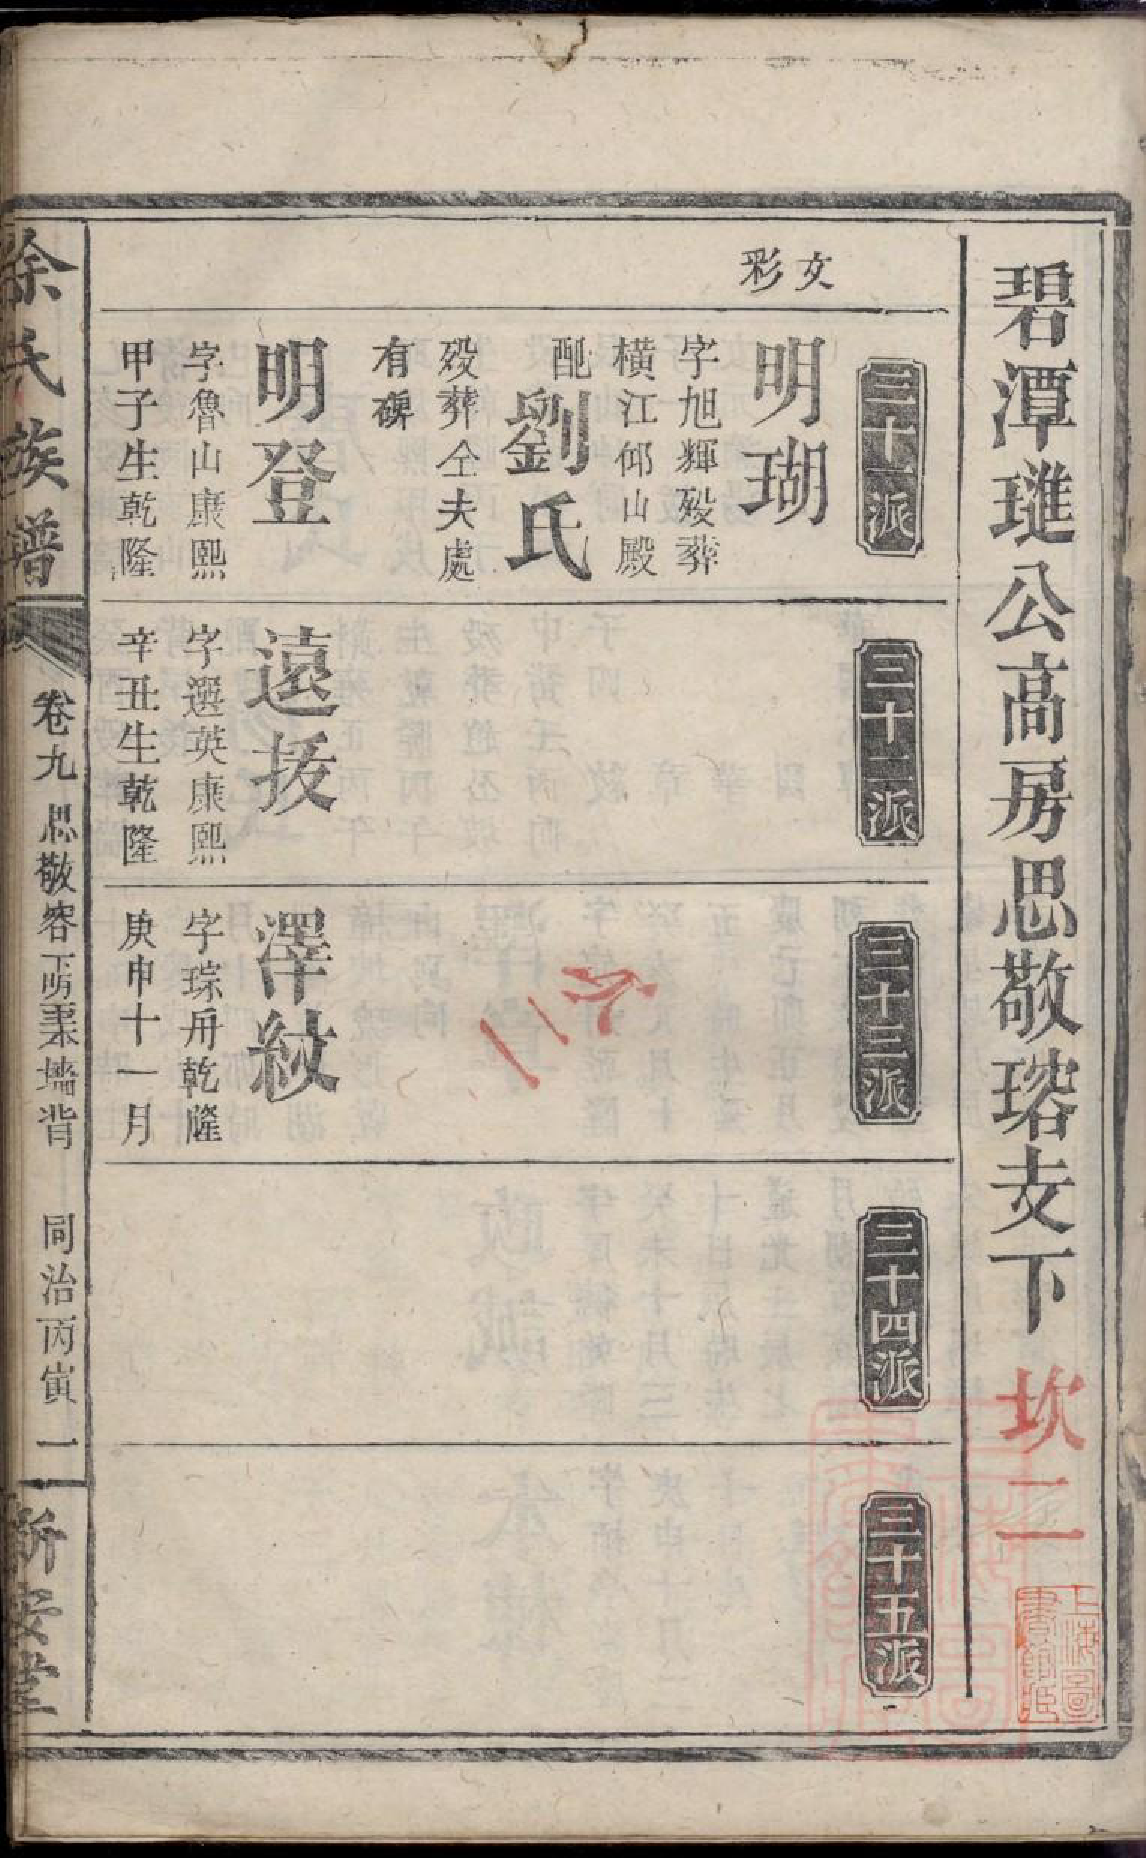 碧潭璡公高房思敬瑢支下
坎二
上海圖書館藏
文
彩
三十一派
明瑚
字旭輝殁葬
橫江邮山殿
配劉氏
殁葬仝夫處
有碑
明登
字魯山康熙
甲子生乾隆
三十二派
遠拔
字選英康熙
辛丑生乾隆
三十三派
澤紋
字琮舟乾隆
庚申十一月
三十四派
三十五派
徐氏族譜
卷九
思敬容
同治丙寅
一
新安堂